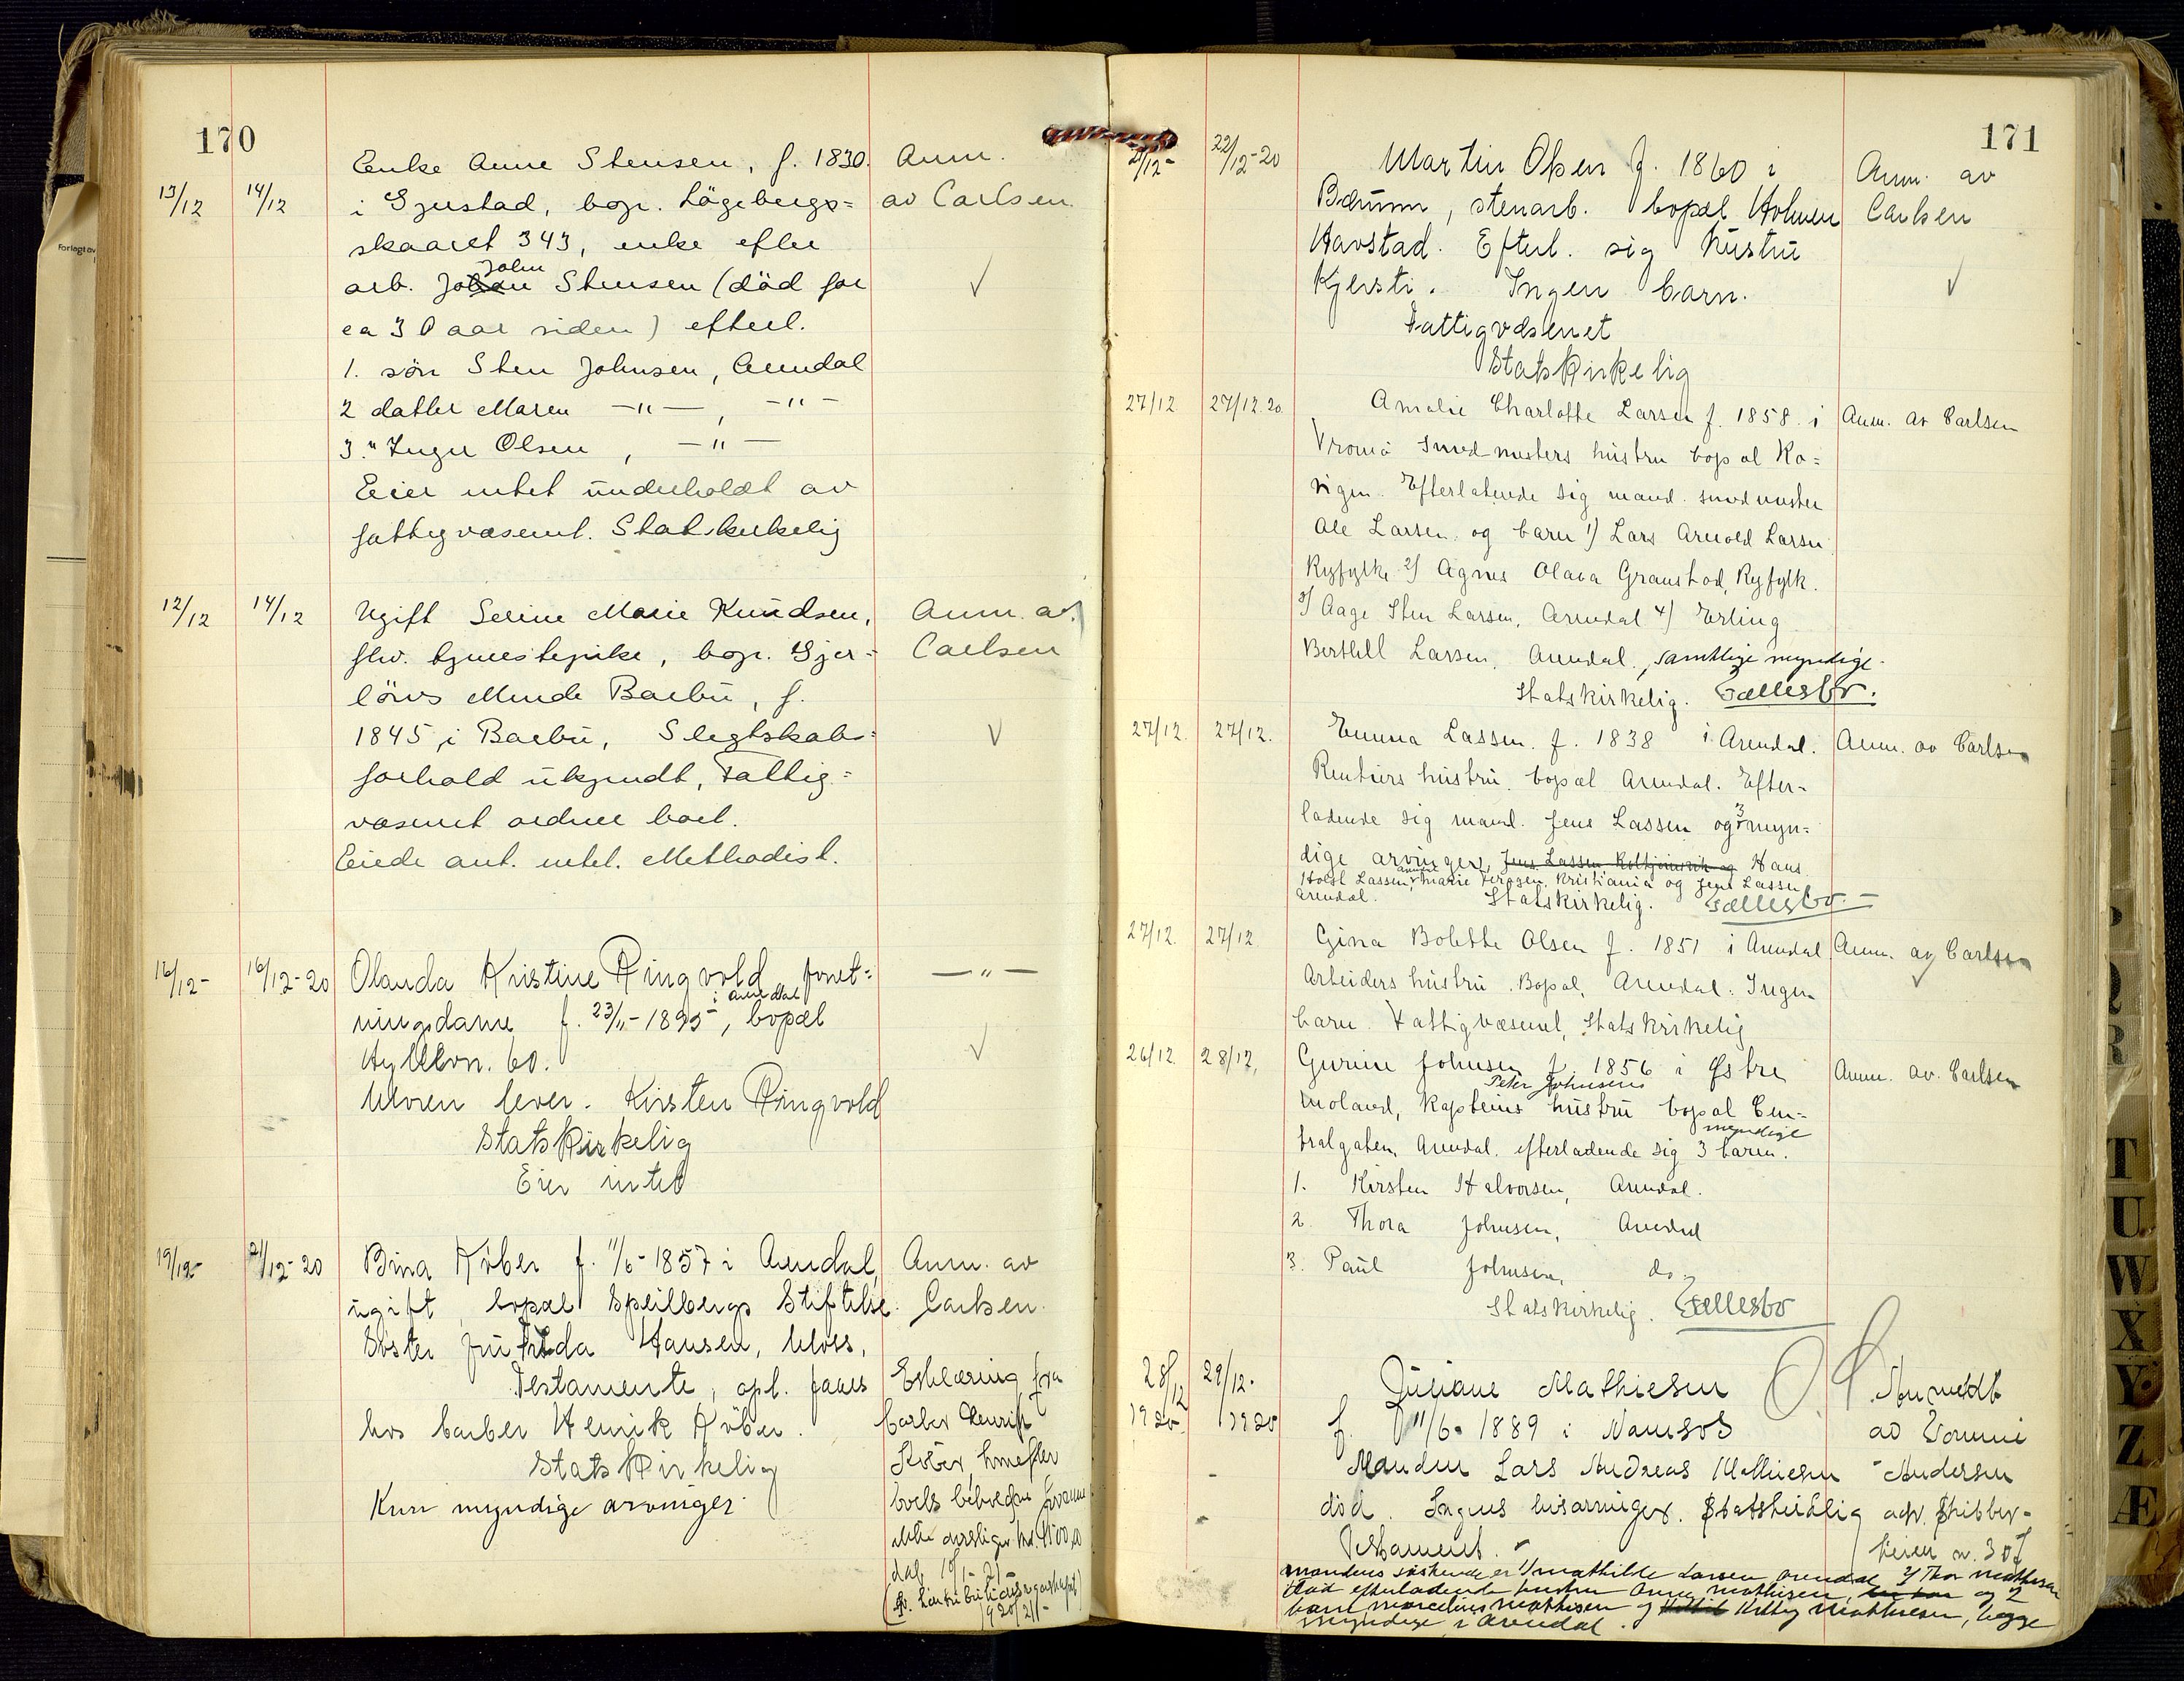 170
Enke Anne Stensen, f. 1830. Anm.
13/12 14/12 i Gjerstad, bop. Lögebergs= av Carlsen.
skaaret 343, enke efter
John
arb. Johan Stensen (död for
ca 30 aar siden) efterl.
1. sön Sten Johnsen, Arendal
2 datter Maren —"—, —"—
3. " Inger Olsen, —"—
Eier intet underholdt av
fattigvæsenet. Statskirkelig
12/12 14/12 Ugift Serine Marie Knudsen, Anm. av
fhv. tjenestepike, bop. Gjer= Carlsen
lövs Minde Barbu, f.
1845 i Barbu, Slegtskabs=
forhold ukjendt, Fattig=
væsenet ordner boet.
Eiede ant. intet. Methodist.
16/12- 16/12-20 Olanda Kristine Ringvold forret= —"—
i Arendal
ningsdame f. 23/11-1895, bopæl
Hyllevn. 60.
Moren lever. Kirsten Ringvold
Statskirkelig
Eier intet
19/12- 21/12-20 Bina Köber f. 11/6-1857 i Arendal, Anm. av
ugift, bopæl Speilbergs Stiftelse. Carlsen.
Söster fru Hilda Hansen, Moss.
Testamente, opl. faaes Erklæring fra
hos barber Henrik Köber. barber Henrik
Statskirkelig Köber, hvorefter
Kun myndige arvinger. boets beholdne
ikke overstiger kr. 1500,00
dat. 10/1-21-
1920/21-
171
21/12- 22/12-20 Martin Olsen f. 1860 i Anm. av
Bærum, stenarb. bopæl Holmen Carlsen
Havstad. Efterl. sig hustru
Kjersti. Ingen barn.
Fattigvæsenet
Statskirkelig
27/12 27/12.20. Amalie Charlotte Larsen f. 1858. i Anm. av Carlsen
Tromö Smedmesters hustru bopæl Ko=
vigen. Efterlatende sig mand. smedmester
Ole Larsen og barn 1) Lars Arnold Larsen
Ryfylke 2) Agnes Olava Granstad, Ryfylk.
3) Aage Sten Larsen, Arendal 4) Erling
Berthell Larsen, Arendal., samtlige myndige.
Statskirkelig. Fællesbo.
27/12. 27/12. Emma Lassen. f. 1838 i Arendal. Anm. av Carlsen
Rentiers hustru. bopæl Arendal. Efter-
ladende sig mand. Jens Lassen og 3 myn=
dige arvinger, Jens Lassen Kolbjørnsvik og Hans
Holst Lassen, Marie Terjesen, Kristiania og Jens Lassen
Arendal. Statskirkelig. Fællesbo.—
27/12. 27/12 Gina Bolette Olsen f. 1851 i Arendal Anm. av Carlsen
Arbeiders hustru. Bopæl, Arendal. Ingen
barn. Fattigvæsenet, Statskirkelig
26/12. 28/12, Gurine Johnsen f. 1856 i Østre Anm. av. Carlsen
Peter Johnsens
Moland, Kapteins hustru bopæl Cen=
myndige
tralgaten, Arendal. efterladende sig 3 barn.
1. Kirsten Halvorsen, Arendal.
2. Thora Johnsen, Arendal
3. Paul Johnsen, do
Statskirkelig. Fællesbo
28/12 29/12. Juliane Mathiesen Anmeldt
1920. 1920 f. 11/6. 1889 i Namsos av Tommi
Manden Lars Andreas Mathiesen Andersen
död. Ingen livsarvinger. Statskirkelig adr. Skibber-
Testament. heien n. 307
mandens söskende er 1) Mathilde Larsen Arendal 2) Thor Mathisen
död efterladende hustru Anna Mathisen, og 2
barn, Marcelius Mathisen og Kitty Mathiesen, begge
myndige i Arendal.
P
Q
R
T
U
W
X
Y
Z
Æ